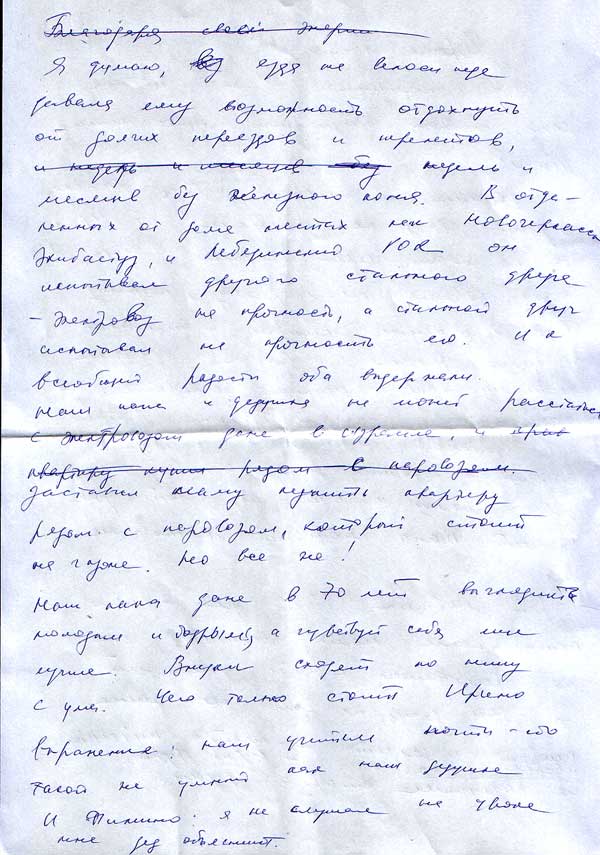 Благодаря своей энергии
Я думаю, без езда на велосипеде
давала ему возможность отдохнуть
от долгих переездов и
и недель и месяцев без недель и
месяцев без железного коня. В отда-
ленных от дома местах как Новочеркасск
Экибастуз, и Лебединский ГОК он
испытывал другого стального друга
- электровоз на прочность, а стальной друг
испытывал на прочность его. И к
всеобщей радости оба выдержали.
Наш папа и дедушка не может расстаться
с электровозом даже в Израиле, и
квартиру купил рядом с паровозом.
заставил маму купить квартиру
рядом с паровозом, который стоит
на газоне. Но все же!
Наш папа даже в 70 лет выглядит
молодым и бодрым, а чувствует себя еще
лучше. Внуки сходят по нему
с ума. Чего только стоит Ирино
выражение: наш учитель почти-что
такой же умный как наш дедушка
И я не слушаю на уроке
мне дед объяснит.